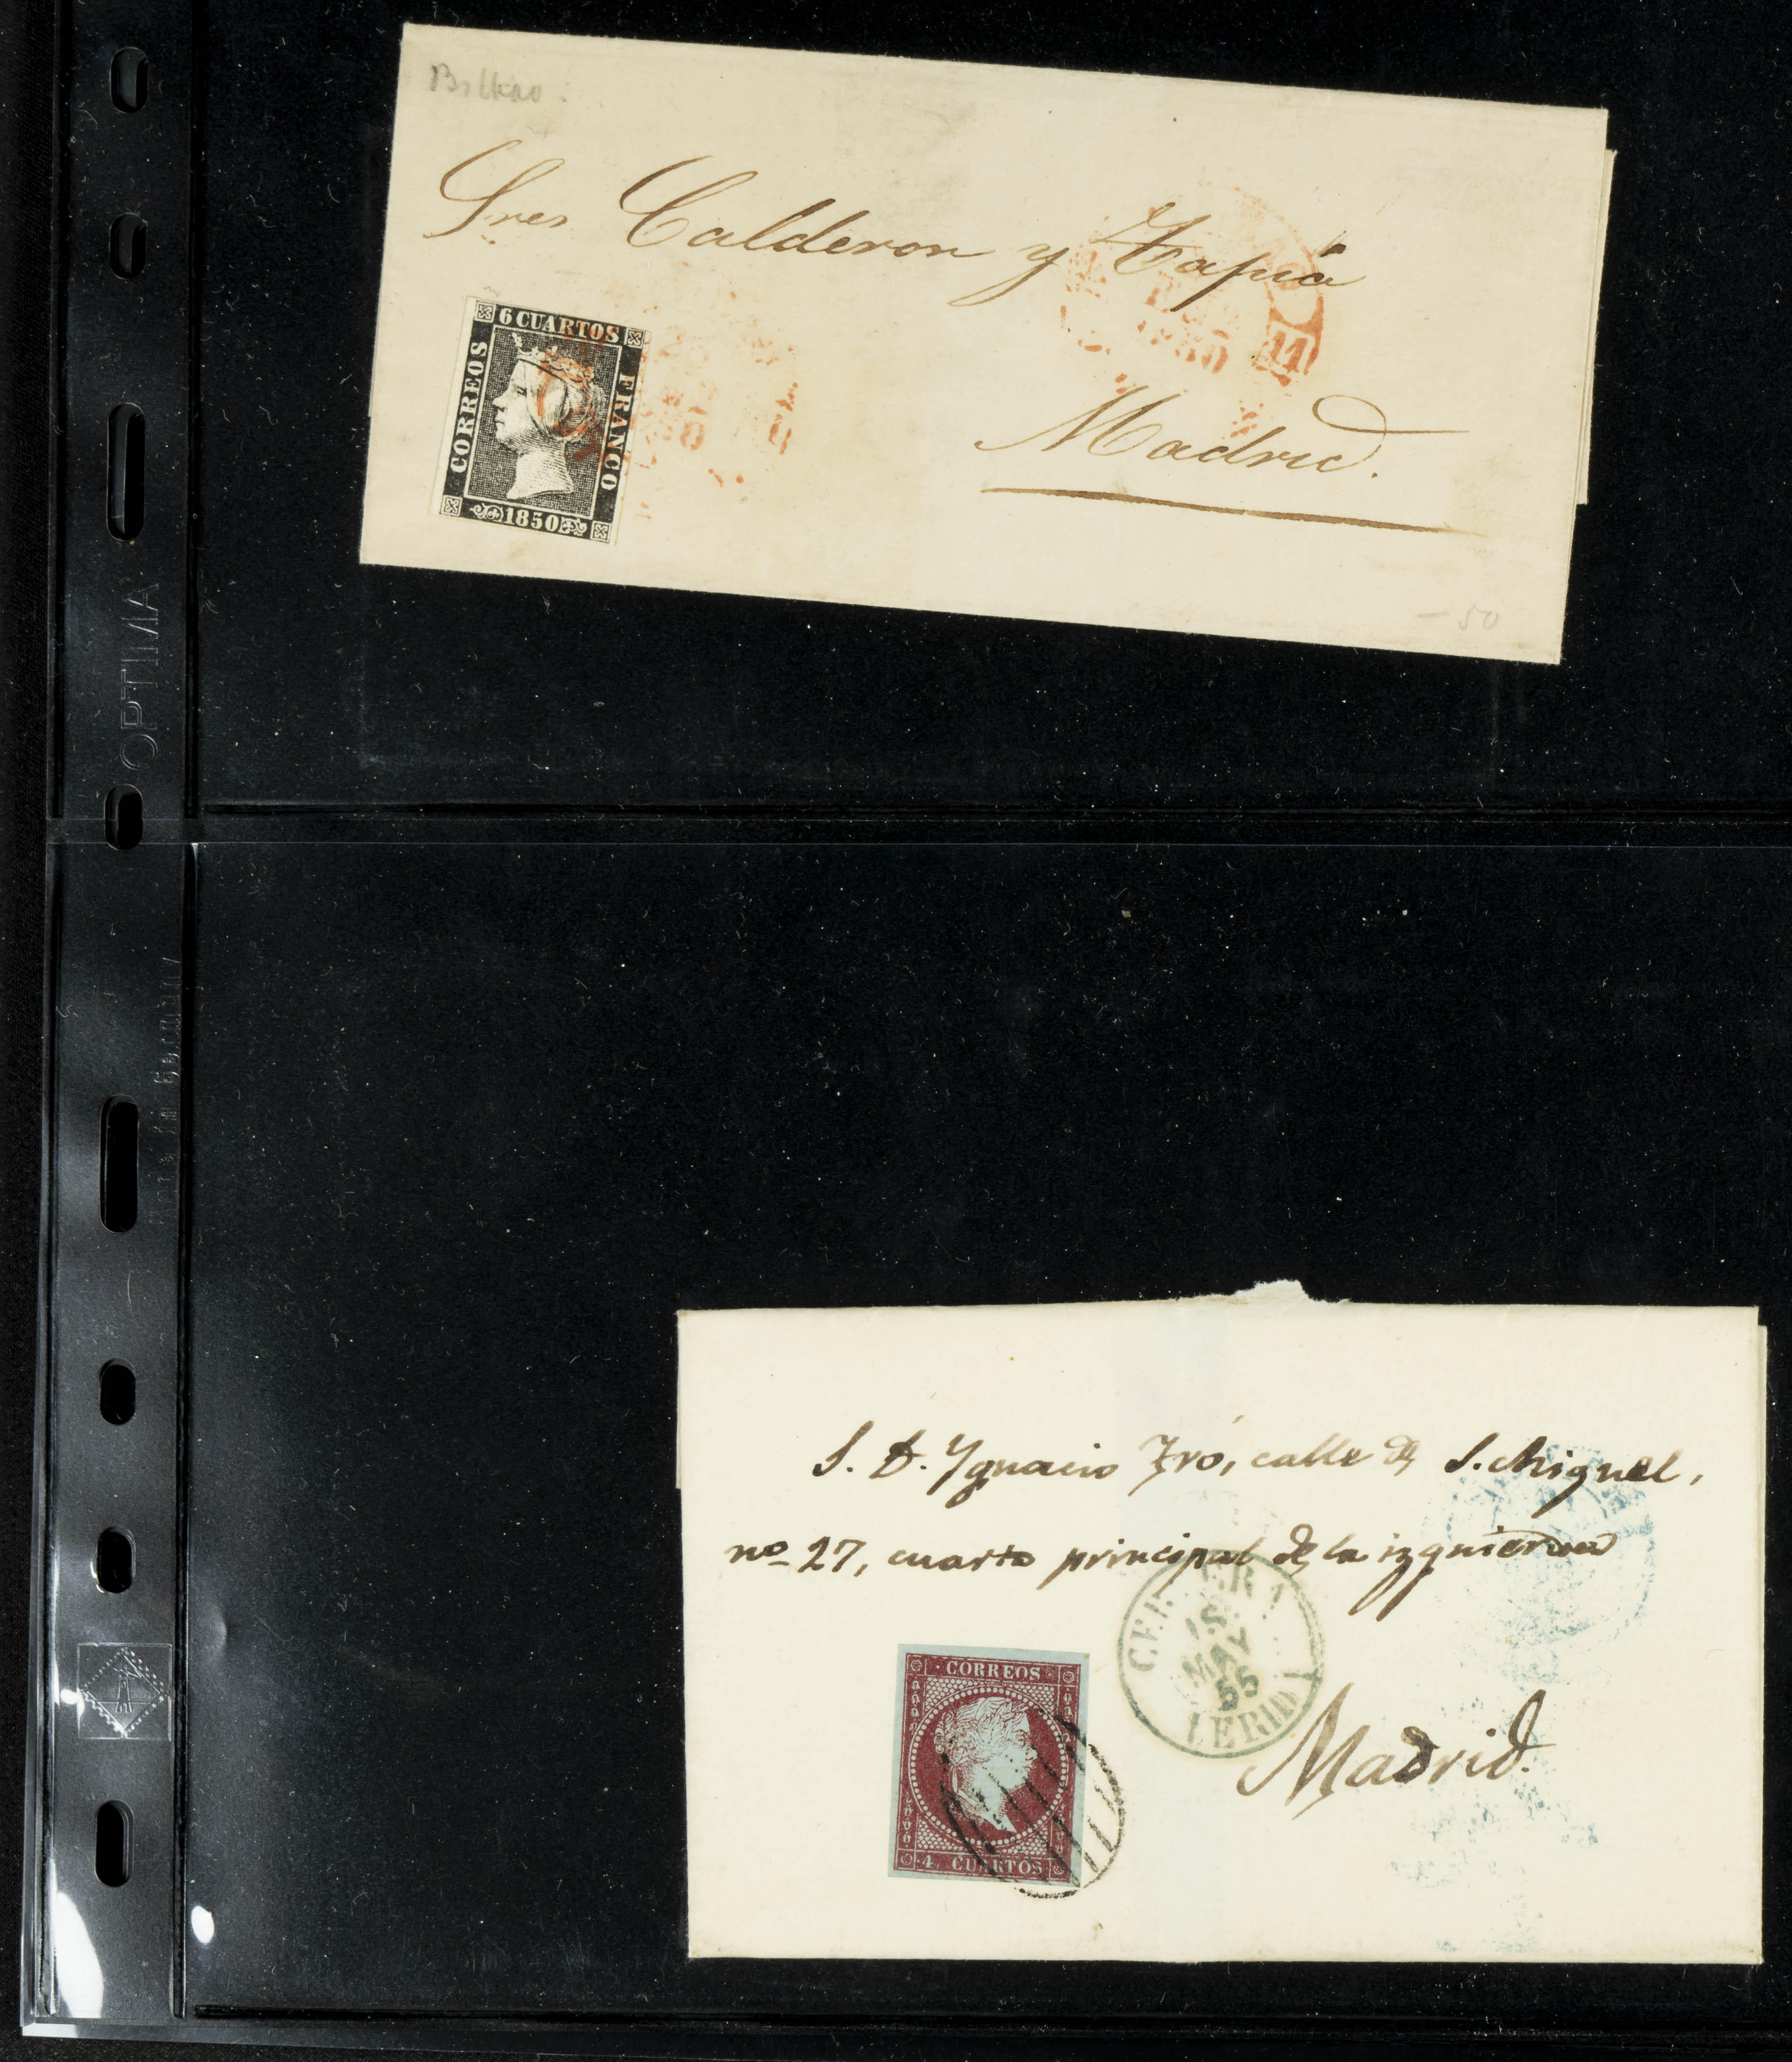 Bilbao.
Sres Calderon y Tapia
6 CUARTOS
CORREOS
FRANCO
1850
1850
11
Madrid.
- 50
OPTIMA
Germany
S. D. Ygnacio Yró, calle de S. Miguel,
nº 27, cuarto principal de la izquierda
CERVERA
18
MAY
55
LERIDA
CORREOS
4. CUARTOS
Madrid.